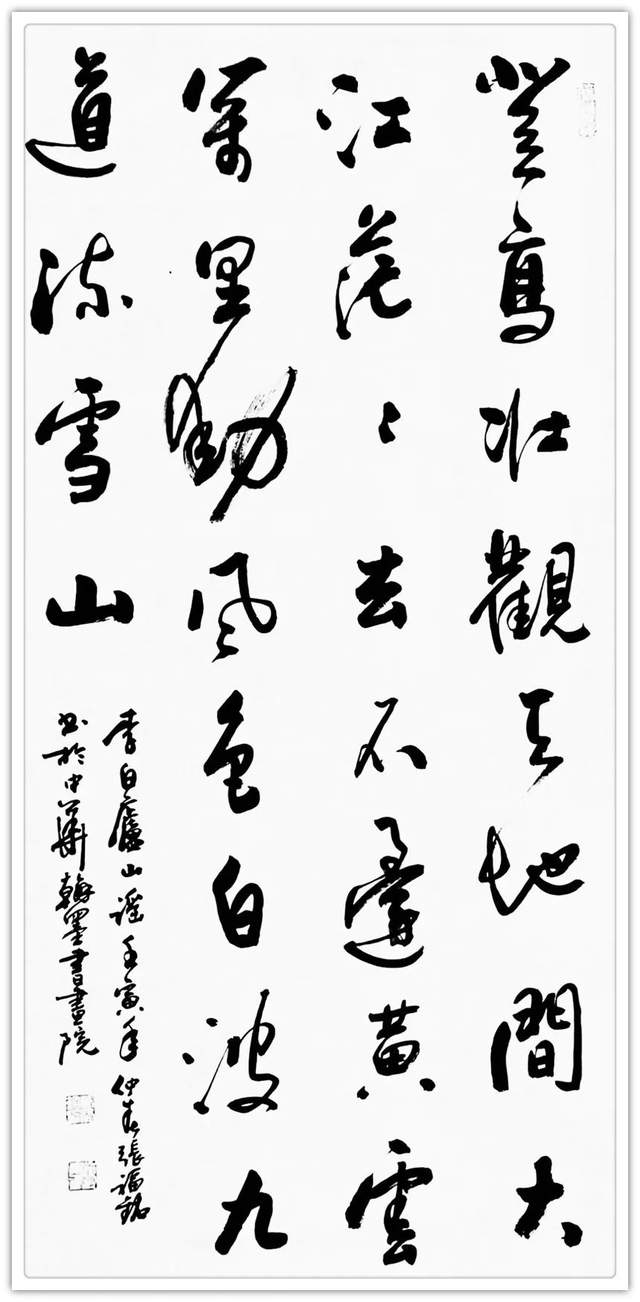 登高壮觀天地間大
江茫〻去不還黄雲
萬里動風色白波九
道流雪山
李白廬山谣壬寅年仲春張福銘
书於中華翰墨書畫院